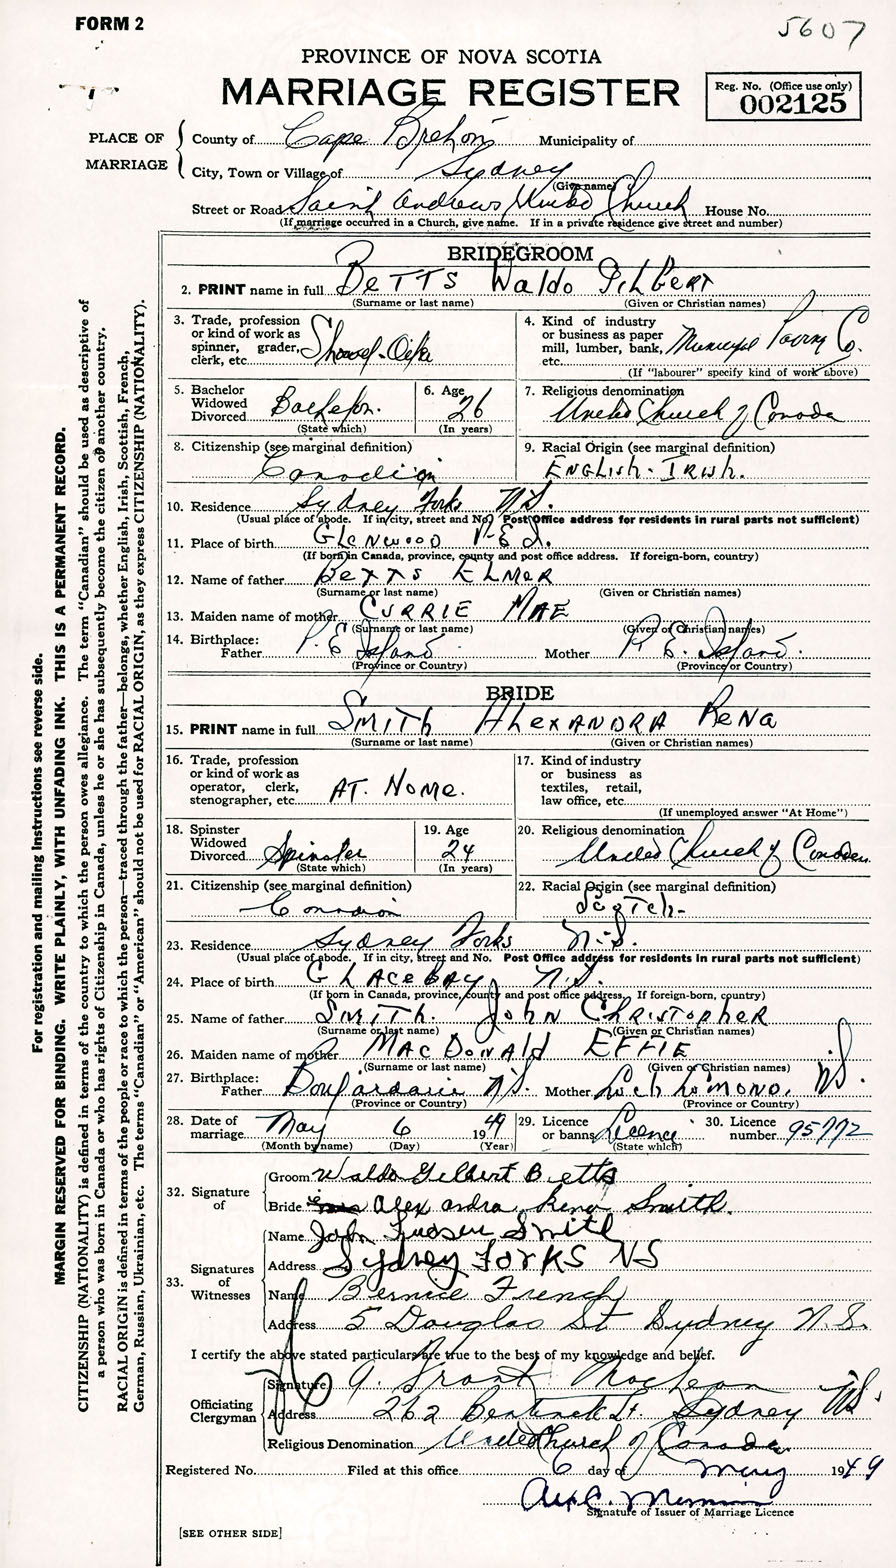 FORM 2
5607
PROVINCE OF NOVA SCOTIA
MARRIAGE REGISTER
Reg. No. (Office use only)
002125
PLACE OF MARRIAGE
County of Cape Breton Municipality of
City, Town or Village of Sydney
(Give name)
Street or Road Saint Andrews United Church House No.
(If marriage occurred in a Church, give name. If in a private residence give street and number)
BRIDEGROOM
2. PRINT name in full BETTS Waldo GILBERT
(Surname or last name) (Given or Christian names)
3. Trade, profession or kind of work as spinner, grader, clerk, etc.
4. Kind of industry or business as paper mill, lumber, bank, etc. Municipal Paving Co.
(If "labourer" specify kind of work above)
5. Bachelor Widowed Divorced Bachelor.
(State which)
6. Age 26
(In years)
7. Religious denomination United Church of Canada
8. Citizenship (see marginal definition) Canadian
9. Racial Origin (see marginal definition) ENGLISH - IRISH.
10. Residence Sydney Forks N.S.
(Usual place of abode. If in city, street and No. Post Office address for residents in rural parts not sufficient)
11. Place of birth GLENWOOD P.E.I.
(If born in Canada, province, county and post office address. If foreign-born, country)
12. Name of father BETTS ELMER
(Surname or last name) (Given or Christian names)
13. Maiden name of mother CURRIE MAE
(Surname or last name) (Given or Christian names)
14. Birthplace: Father P.E. Island Mother P.E. Island.
(Province or Country) (Province or Country)
BRIDE
15. PRINT name in full SMITH ALEXANDRA RENA
(Surname or last name) (Given or Christian names)
16. Trade, profession or kind of work as operator, clerk, stenographer, etc. AT. HOME.
17. Kind of industry or business as textiles, retail, law office, etc.
(If unemployed answer "At Home")
18. Spinster Widowed Divorced Spinster
(State which)
19. Age 24
(In years)
20. Religious denomination United Church of Canada
21. Citizenship (see marginal definition) Canadian
22. Racial Origin (see marginal definition) Scotch-
23. Residence Sydney Forks N.S.
(Usual place of abode. If in city, street and No. Post Office address for residents in rural parts not sufficient)
24. Place of birth GLACE BAY N.S.
(If born in Canada, province, county and post office address. If foreign-born, country)
25. Name of father SMITH. JOHN CHRISTOPHER
(Surname or last name) (Given or Christian names)
26. Maiden name of mother MACDONALD EFFIE
(Surname or last name) (Given or Christian names)
27. Birthplace: Father N.S. Mother Loch Lomond, N.S.
(Province or Country) (Province or Country)
28. Date of marriage May 6 1949
(Month by name) (Day) (Year)
29. Licence or banns Licence
(State which)
30. Licence number 95772
32. Signature of
Groom Waldo Gilbert Betts
Bride Alexandra Rena Smith.
33. Signatures of Witnesses
Name John Smith
Address Sydney Forks NS
Name Bernice French
Address 5 Douglas St Sydney N.S.
I certify the above stated particulars are true to the best of my knowledge and belief.
Officiating Clergyman
Signature A. Grant MacLean
Address 262 Bentinck St. Sydney NS
Religious Denomination United Church of Canada
Registered No. Filed at this office 6 day of May 1949
Signature of Issuer of Marriage Licence
[SEE OTHER SIDE]
For registration and mailing instructions see reverse side.
MARGIN RESERVED FOR BINDING. WRITE PLAINLY, WITH UNFADING INK. THIS IS A PERMANENT RECORD.
CITIZENSHIP (NATIONALITY) is defined in terms of the country to which the person owes allegiance. The term "Canadian" should be used as descriptive of
a person who was born in Canada or who has rights of Citizenship in Canada, unless he or she has subsequently become the citizen of another country.
RACIAL ORIGIN is defined in terms of the people or race to which the person—traced through the father—belongs, whether English, Irish, Scottish, French,
German, Russian, Ukrainian, etc. The terms "Canadian" or "American" should not be used for RACIAL ORIGIN, as they express CITIZENSHIP (NATIONALITY).